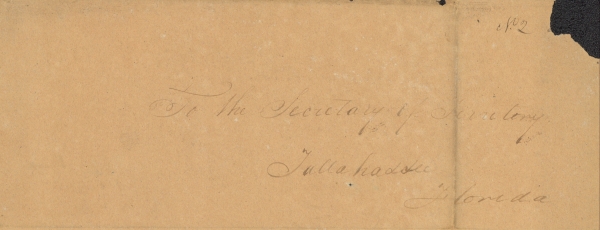 No 2
To the Secretary of Teritory
Tallahasse
Floreda